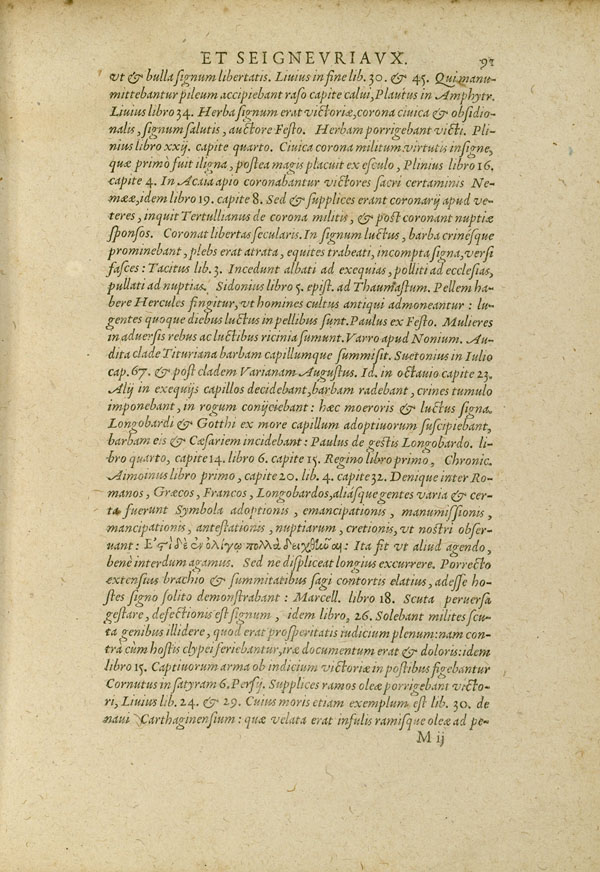 ET SEIGNEVRIAVX. 91
vt & bulla signum libertatis. Liuius in fine lib. 30. & 45. Qui manu-
mittebantur pileum accipiebant raso capite calui, Plautus in Amphytr.
Liuius libro 34. Herba signum erat victoriæ, corona ciuica & obsidio-
nalis, signum salutis, auctore Festo. Herbam porrigebant victi. Pli-
nius libro xxij. capite quarto. Ciuica corona militum virtutis insigne,
quæ primò fuit iligna, postea magis placuit ex esculo, Plinius libro 16.
capite 4. In Acaia apio coronabantur victores sacri certaminis Ne-
mææ, idem libro 19. capite 8. Sed & supplices erant coronarij apud ve-
teres, inquit Tertullianus de corona militis, & post coronant nuptiæ
sponsos. Coronat libertas secularis. In signum luctus, barba crinésque
prominebant, plebs erat atrata, equites trabeati, incompta signa, versi
fasces: Tacitus lib. 3. Incedunt albati ad exequias, polliti ad ecclesias,
pullati ad nuptias. Sidonius libro 5. epist. ad Thaumastum. Pellem ha-
bere Hercules fingitur, vt homines cultus antiqui admoneantur: lu-
gentes quoque diebus luctus in pellibus sunt. Paulus ex Festo. Mulieres
in aduersis rebus ac luctibus ricinia sumunt. Varro apud Nonium. Au-
dita clade Tituriana barbam capillumque summisit. Suetonius in Iulio
cap. 67. & post cladem Varianam Augustus. Id. in octauio capite 23.
Alij in exequijs capillos decidebant, barbam radebant, crines tumulo
imponebant, in rogum conijciebant: hæc moeroris & luctus signa.
Longobardi & Gotthi ex more capillum adoptiuorum suscipiebant,
barbam eis & Cæsariem incidebant: Paulus de gestis Longobardo. li-
bro quarto, capite 14. libro 6. capite 15. Regino libro primo, Chronic.
Aimoinus libro primo, capite 20. lib. 4. capite 32. Denique inter Ro-
manos, Græcos, Francos, Longobardos, aliásque gentes varia & cer-
ta fuerunt Symbola adoptionis, emancipationis, manumissionis,
mancipationis, antestationis, nuptiarum, cretionis, vt nostri obser-
uant: Ita fit vt aliud agendo,
benè interdum agamus. Sed ne displiceat longius excurrere. Porrecto
extensius brachio & summitatibus sagi contortis elatius, adesse ho-
stes signo solito demonstrabant: Marcell. libro 18. Scuta peruersa
gestare, defectionis est signum, idem libro, 26. Solebant milites scu-
ta genibus illidere, quod erat prosperitatis iudicium plenum: nam con-
tra cùm hostis clypei feriebantur, iræ documentum erat & doloris: idem
libro 15. Captiuorum arma ob indicium victoriæ in postibus figebantur
Cornutus in satyram 6. Persij. Supplices ramos oleæ porrigebant victo-
ri, Liuius lib. 24. & 29. Cuius moris etiam exemplum est lib. 30. de
naui Carthaginensium: quæ velata erat infulis ramisque oleæ ad pe-
M ij